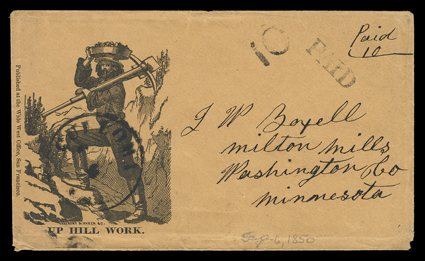 Paid
10
PAID
10
J W Boxell
Milton Mills
Washington Co
Minnesota
Published at the Wide West Office, San Francisco.
UP HILL WORK.